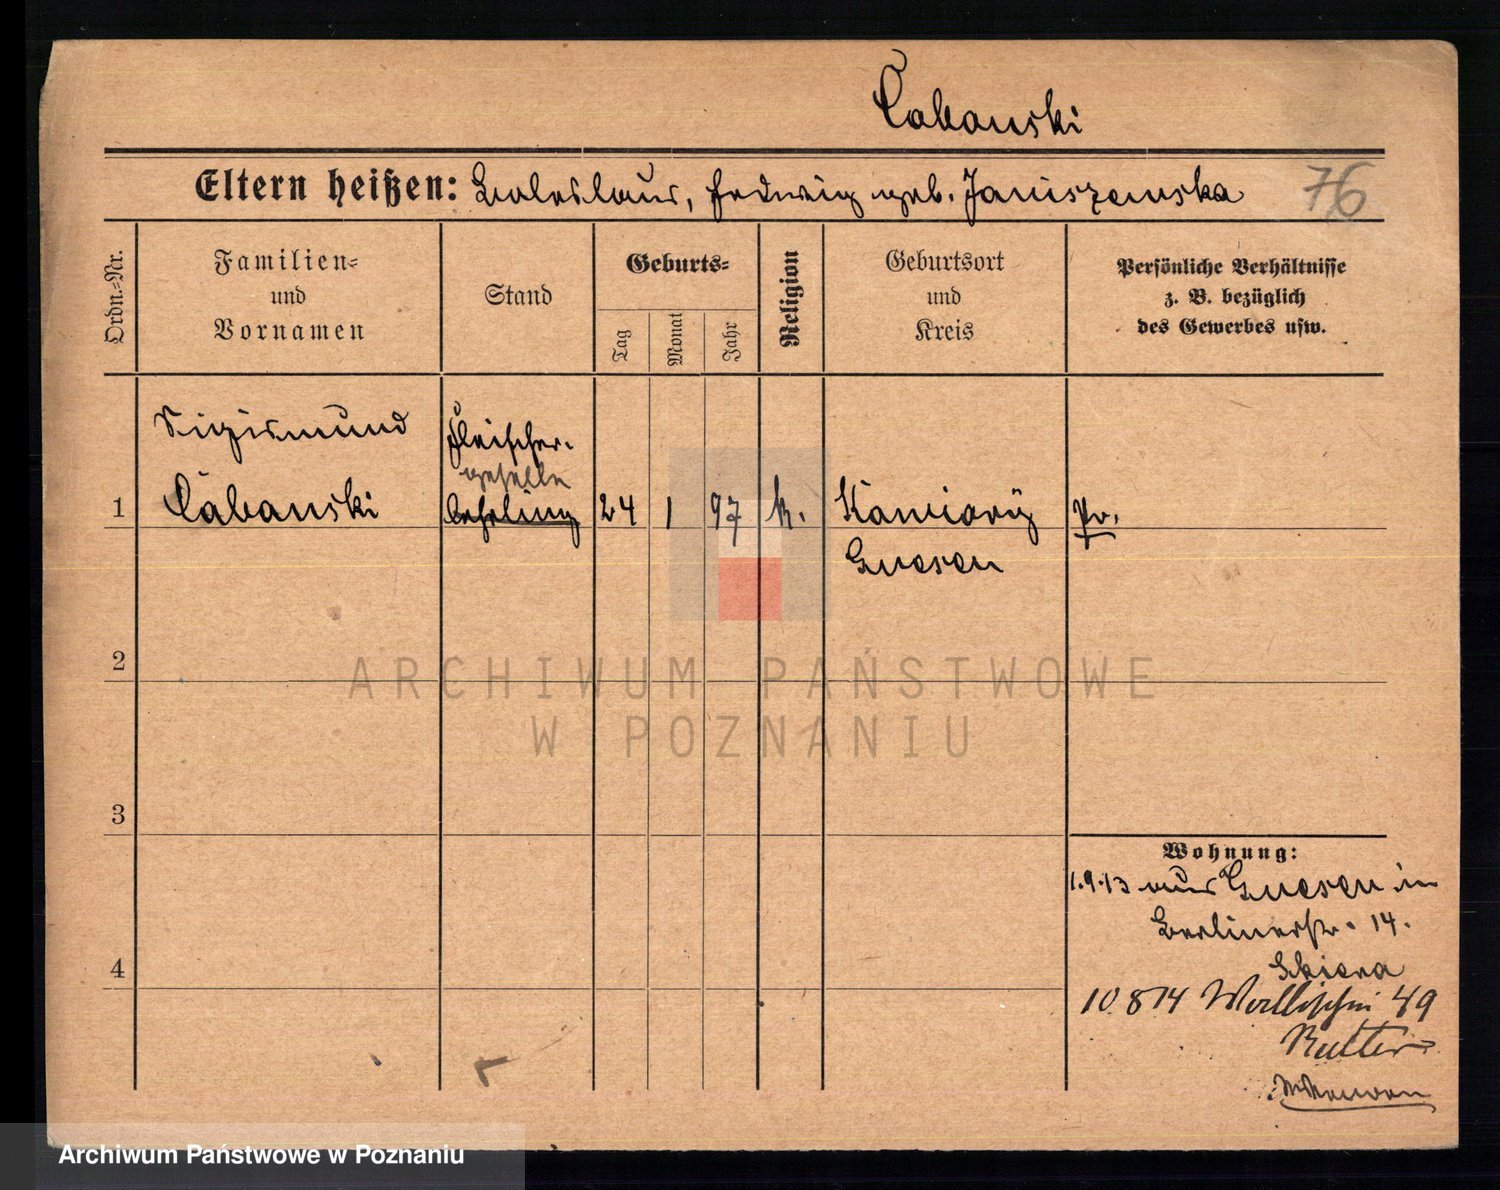 Cabanski
Eltern heißen: Boleslaus, Hedwig geb. Janiszewska
76
Ordn.-Nr.
Familien-
und
Vornamen
Stand
Geburts-
Tag
Monat
Jahr
Religion
Geburtsort
und
Kreis
Persönliche Verhältnisse
z. B. bezüglich
des Gewerbes usw.
Sigismund
Fleischer-
geselle
1 Cabanski lehrling 24 1 97 k. Pr.
Gnesen
2
ARCHIWUM PAŃSTWOWE
W POZNANIU
3
Wohnung:
1.9.13 aus Gnesen in
Berlinerstr. 14.
4
Skiera
10 8 14 Wallischei 49
Archiwum Państwowe w Poznaniu